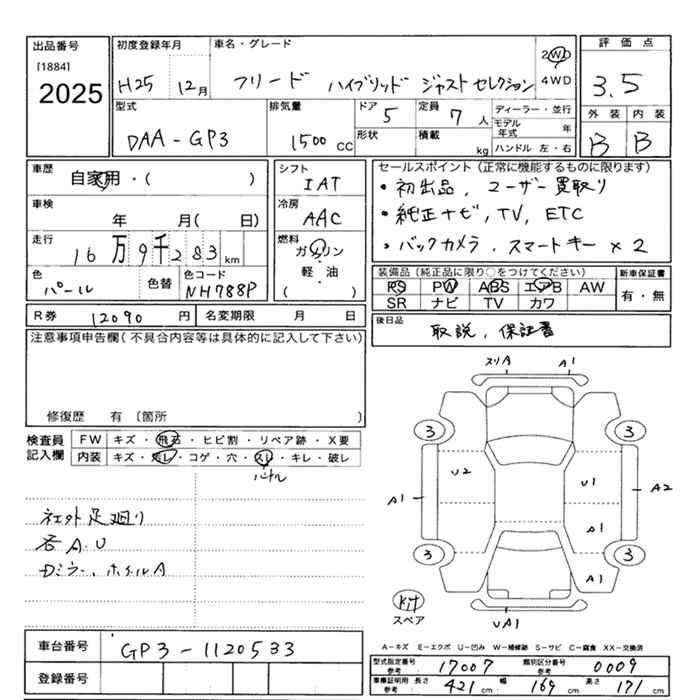 出品番号
[1884]
2025
初度登録年月
H25 12月
車名・グレード
フリード ハイブリッド ジャストセレクション
2WD
4WD
評価点
3.5
外装 内装
B B
型式
DAA-GP3
排気量
1500 CC
ドア
5
形状
定員
7 人
積載
kg
ディーラー・並行
モデル年式 年
ハンドル 左・右
車歴
自家用・( )
車検
年 月( 日)
走行
16万9千283 km
色
パール
色替
色コード
NH788P
シフト
IAT
冷房
AAC
燃料
ガソリン
軽・油
( )
セールスポイント(正常に機能するものに限ります)
・初出品、ユーザー買取り
・純正ナビ,TV, ETC
・バックカメラ、スマートキー×2
装備品(純正品に限り○をつけてください)
PS PW ABS エアB AW
SR ナビ TV カワ
新車保証書
有・無
R券 12090 円
名変期限 月 日
後日品
取説,保証書
注意事項申告欄(不具合内容等は具体的に記入して下さい)
修復歴 有 〔箇所 〕
検査員記入欄
FW キズ・飛石・ヒビ割・リペア跡・X要
内装 キズ・汚レ・コゲ・穴・スレ・キレ・破レ
パネル
社外足廻り
各A.U
Dミラー、ホイルA
スリA A1
3 3
U2 U1
A1 A2
A1
3 3
A1
Kit
スペア
UA1
A-キズ E-エクボ U-凹み W-補修跡 S-サビ C-腐食 XX-交換済
車台番号 GP3-1120533
登録番号
型式指定番号 参考 17007
類別区分番号 参考 0009
車庫証明用 参考 長さ 421 cm 幅 169 cm 高さ 171 cm